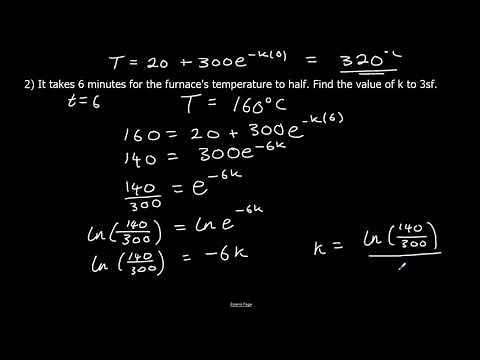 T = 20 + 300e^{-k(0)} = 320°C
2) It takes 6 minutes for the furnace's temperature to half. Find the value of k to 3sf.
t=6 T = 160°C
160 = 20 + 300e^{-k(6)}
140 = 300e^{-6k}
140/300 = e^{-6k}
ln(140/300) = ln e^{-6k}
ln(140/300) = -6k k = ln(140/300)/